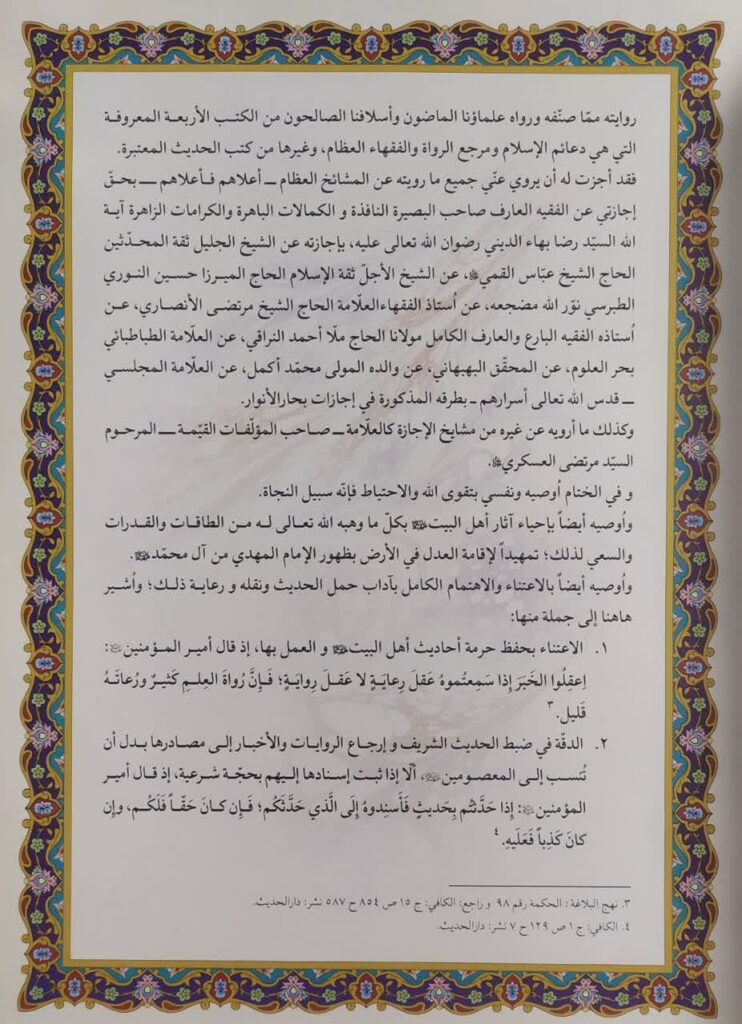 روايته ممّا صنّفه ورواه علماؤنا الماضون وأسلافنا الصالحون من الكتب الأربعة المعروفة
التي هي دعائم الإسلام ومرجع الرواة والفقهاء العظام، وغيرها من كتب الحديث المعتبرة.
فقد أجزت له أن يروي عنّي جميع ما رويته عن المشائخ العظام ــ أعلاهم فأعلاهم ــ بحقّ
إجازتي عن الفقيه العارف صاحب البصيرة النافذة و الكمالات الباهرة والكرامات الزاهرة آية
الله السيّد رضا بهاء الديني رضوان الله تعالى عليه، بإجازته عن الشيخ الجليل ثقة المحدّثين
الحاج الشيخ عبّاس القمي، عن الشيخ الأجلّ ثقة الإسلام الحاج الميرزا حسين النوري
الطبرسي نوّر الله مضجعه، عن أُستاذ الفقهاءالعلّامة الحاج الشيخ مرتضى الأنصاري، عن
أُستاذه الفقيه البارع والعارف الكامل مولانا الحاج ملّا أحمد النراقي، عن العلّامة الطباطبائي
بحر العلوم، عن المحقّق البهبهاني، عن والده المولى محمّد أكمل، عن العلّامة المجلسي
ــ قدس الله تعالى أسرارهم ـ بطرقه المذكورة في إجازات بحارالأنوار.
وكذلك ما أرويه عن غيره من مشايخ الإجازة كالعلّامة ــ صاحب المؤلّفات القيّمة ــ المرحوم
السيّد مرتضى العسكري.
و في الختام أوصيه ونفسي بتقوى الله والاحتياط فإنّه سبيل النجاة.
واُوصيه أيضاً بإحياء آثار أهل البيت بكلّ ما وهبه الله تعالى له من الطاقات والقدرات
والسعي لذلك؛ تمهيداً لإقامة العدل في الأرض بظهور الإمام المهدي من آل محمّد.
واُوصيه أيضاً بالاعتناء والاهتمام الكامل بآداب حمل الحديث ونقله و رعاية ذلك؛ واُشير
هاهنا إلى جملة منها:
١. الاعتناء بحفظ حرمة أحاديث أهل البيت و العمل بها، إذ قال أمير المؤمنين:
اِعقِلُوا الخَبَرَ إِذا سَمِعتُموهُ عَقلَ رِعايَةٍ لا عَقلَ رِوايَةٍ؛ فَإِنَّ رُواةَ العِلمِ كَثيرٌ ورُعاتَهُ
قَليل.٣
٢. الدقّة في ضبط الحديث الشريف و إرجاع الروايات والأخبار إلى مصادرها بدل أن
تُنسب إلى المعصومين، ألّا إذا ثبت إسنادها إليهم بحجّة شرعية، إذ قال أمير
المؤمنين: إِذا حَدَّثتُم بِحَديثٍ فَأَسنِدوهُ إِلَى الَّذي حَدَّثَكُم؛ فَإِن كانَ حَقّاً فَلَكُم، وإِن
كانَ كَذِباً فَعَلَيهِ.٤
٣. نهج البلاغة: الحكمة رقم ٩٨ و راجع: الكافي: ج ١٥ ص ٨٥٤ ح ٥٨٧ نشر: دارالحديث.
٤. الكافي: ج ١ ص ١٢٩ ح ٧ نشر: دارالحديث.